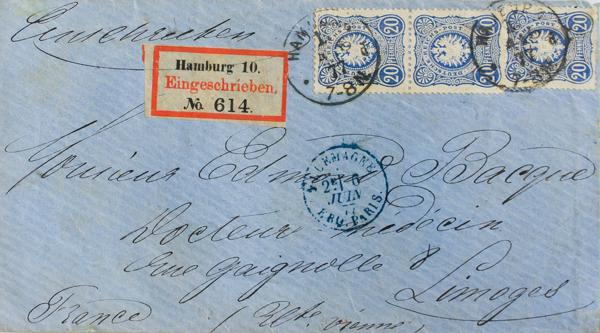 Einschreiben
Hamburg 10.
Eingeschrieben.
No 614.
20 20 20 20
7-8 N.
Monsieur Edmond Bacque
ALLEMAGNE
JUIN
77
ERQ. PARIS
Docteur Médecin
Rue Gaignolle 8
Limoges
France (Hte Vienne)